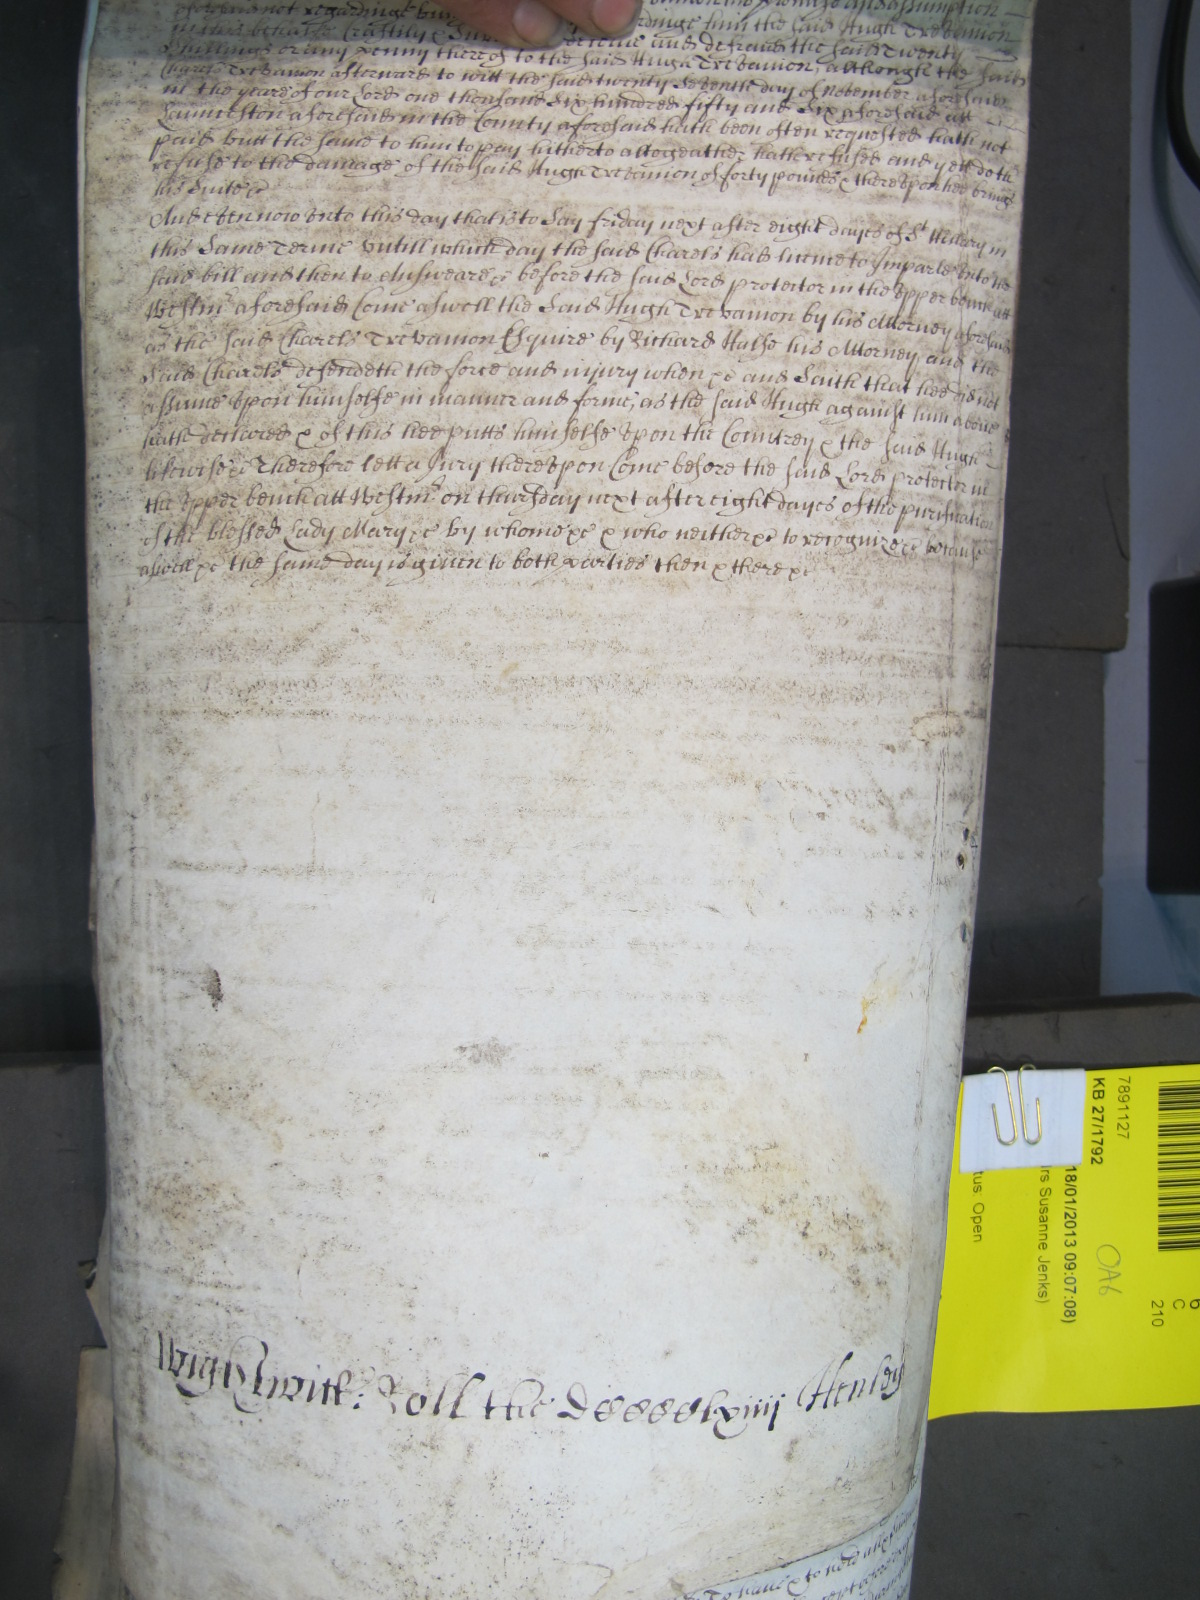 aforesaid not regardinge but promise and assumption
in this behalfe Craftily & rdinge him the said Hugh Trevanion
deceive and defraude the said Twenty
Shillings or any penny thereof to the said Hugh Trevanion, although the said
Charels Trevanion afterwards to witt the said twenty Seventh day of November aforesaid
in the yeare of our Lord one thousand Six hundred fifty and Six aforesaid att
Launceston aforesaid in the County aforesaid hath been often requested hath not
paid butt the same to him to pay hitherto altogeather hath refused and yett doth
refuse to the damage of the said Hugh Trevanion of forty pounds & thereupon hee brings
his Suite &c
And even now unto this day that is to Say friday next after eight dayes of St Hillary in
this Same Terme Untill which day the said Charels had licence to Imparle unto the
said bill and then to Answeare &c before the said Lord protector in the Upper bench att
Westmr aforesaid Come aswell the Said Hugh Trevanion by his Attorney aforesaid
as the said Charels Trevanion Esquire by Richard Hulse his Attorney and the
Said Charels defendeth the force and injury when &c and Saith that hee did not
assume upon himselfe in manner and forme, as the said Hugh against him above
hath declared & of this hee putts himselfe upon the Countrey & the said Hugh
likewise &c Therefore lett a Jury thereupon Come before the said Lord protector in
the Upper bench att Westmr on thursday next after eight dayes of the purification
of the blessed Lady Mary &c by whome &c & who neither &c to recognize &c because
aswell &c the same day is given to both parties then & there &c
Wightwick: Roll the Dcccclxiiij Henley
To have & to hold
7891127
KB 27/1792
18/01/2013 09:07:08)
rs Susanne Jenks)
tus: Open
OA6
6
C
210